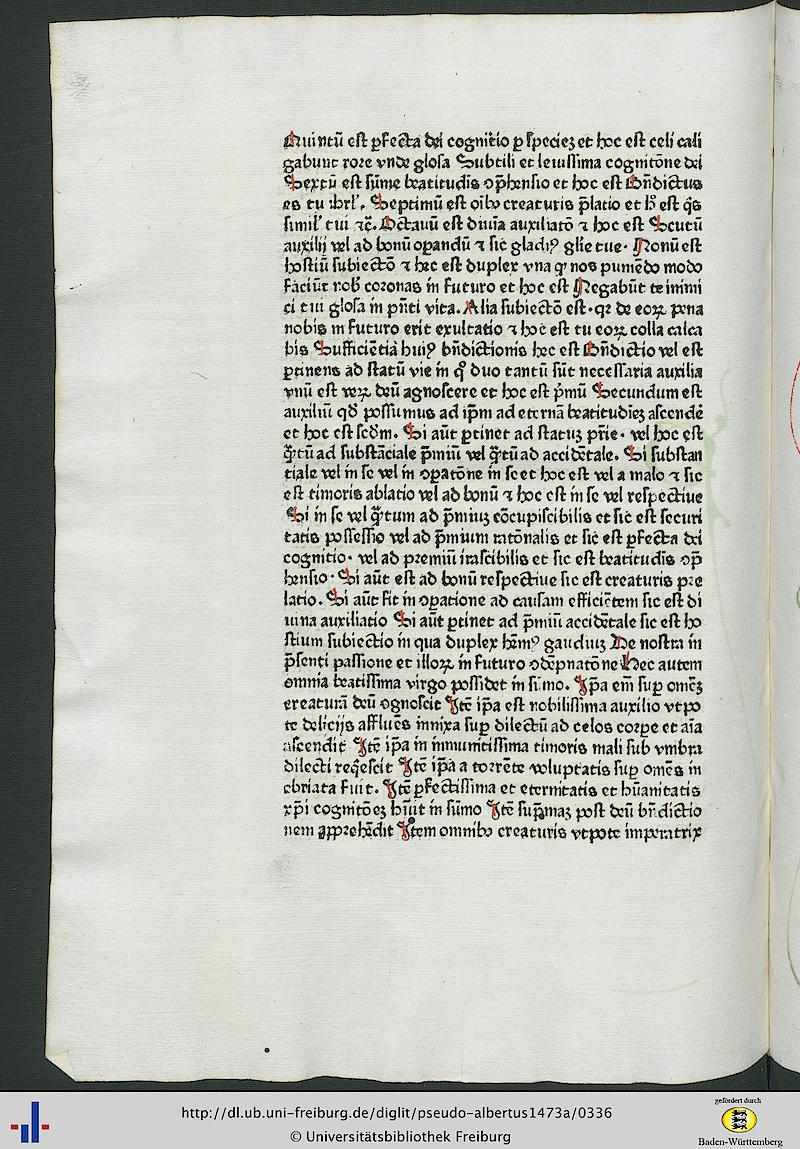 Quintũ est ꝑfecta dei cognitio ꝑ speciez et hoc est celi cali
gabunt rore vnde glosa Subtili et leuissima cognitõne dei
Sextũ est sũme beatitudis ꝯp̃hensio et hoc est Bñdictus
es tu isrl'. Septimũ est oĩbꝰ creaturis p̃latio et h̃ est q̃s
simil' tui ⁊c̃. Octauũ est diuĩa auxiliatõ ⁊ hoc est Scutũ
auxilij vel ad bonũ oꝑandũ ⁊ sic gladiꝰ glĩe tue. Nonũ est
hostiũ subiectõ ⁊ hec est duplex vna qꝛ nos puniẽdo modo
faciũt nob̃ coronas in futuro et hoc est Negabũt te inimi
ci tui glosa in p̃nti vita. Alia subiectõ est. qꝛ de eoꝝ pena
nobis in futuro erit exultatio ⁊ hoc est tu eoꝝ colla calca
bis Sufficiẽtia huiꝰ bñdictionis hec est Bñdictio vel est
ꝑtinens ad statũ vie in q̃ duo tantũ sũt necessaria auxilia
vnũ est veꝝ deũ agnoscere et hoc est p̃mũ Secundum est
auxiliũ qd̃ possumus ad ip̃m ad eternã beatitudiez ascendẽ
et hoc est scd̃m. Si aũt ꝑtinet ad statuz pr̃ie. vel hoc est
q̃ꝫtũ ad substãciale p̃miũ vel q̃ꝫtũ ad accidẽtale. Si substan
tiale vel in se vel in oꝑatõne in se et hoc est vel a malo ⁊ sic
est timoris ablatio vel ad bonũ ⁊ hoc est in se vel respectiue
Si in se vel q̃ꝫtum ad p̃miuz cõcupiscibilis et sic est securi
tatis possessio vel ad p̃mium ratõnalis et sic est ꝑfecta dei
cognitio. vel ad premiũ irascibilis et sic est beatitudis ꝯp̃
hensio. Si aũt est ad bonũ respectiue sic est creaturis pre
latio. Si aũt fit in oꝑatione ad causam efficiẽtem sic est di
uina auxiliatio Si aũt ꝑtinet ad p̃miũ accidẽtale sic est ho
stium subiectio in qua duplex hẽmꝰ gaudiuz De nostra in
p̃senti passione et illoꝝ in futuro ꝯdẽpnatõne Hec autem
omnia beatissima virgo possidet in sũmo. Ip̃a em̃ suꝑ omẽz
creaturã deũ ꝯgnoscit Itẽ ip̃a est nobilissima auxilio vtpo
te delicijs affluẽs innixa suꝑ dilectũ ad celos corꝑe et aĩa
ascendit Itẽ ip̃a in inmunitissima timoris mali sub vmbra
dilecti req̃escit Itẽ ip̃a a torrẽte voluptatis suꝑ omẽs in
ebriata fuit. Itẽ ꝑfectissima et eternitatis et hũanitatis
xp̃i cognitõez hũit in sũmo Itẽ sup̃maz post deũ bñdictio
nem apprehẽdit Item omnibꝰ creaturis vtpote imperatrix
http://dl.ub.uni-freiburg.de/diglit/pseudo-albertus1473a/0336
© Universitätsbibliothek Freiburg
gefördert durch
Baden-Württemberg